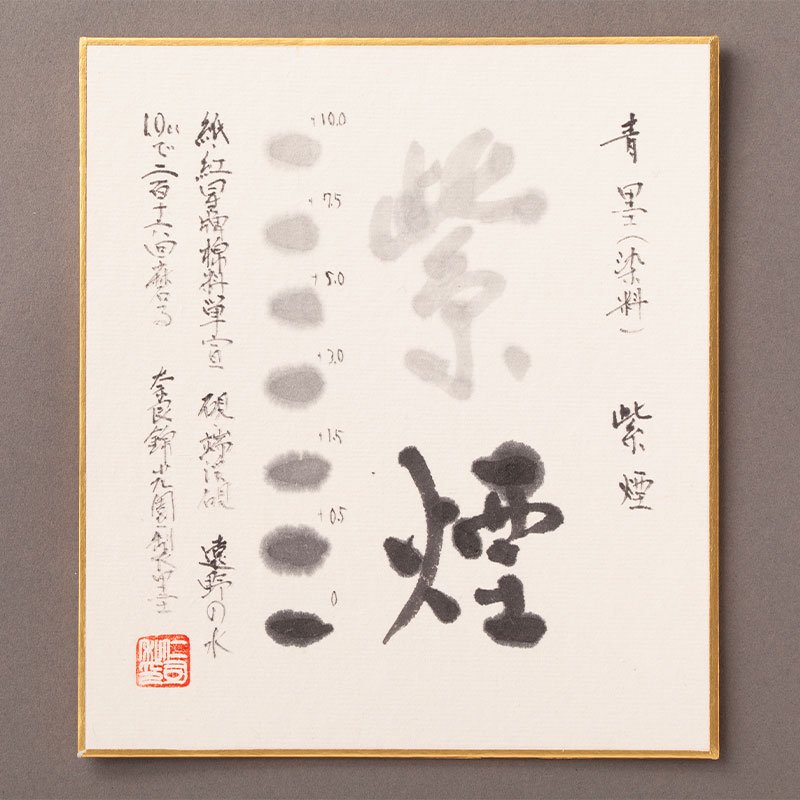 青墨(染料) 紫煙
紫
煙
+10.0
+7.5
+5.0
+3.0
+1.5
+0.5
0
紙・紅星牌棉料単宣 硯・端渓硯 遠野の水
1.0ccで二百十六回磨る 奈良錦光園製墨